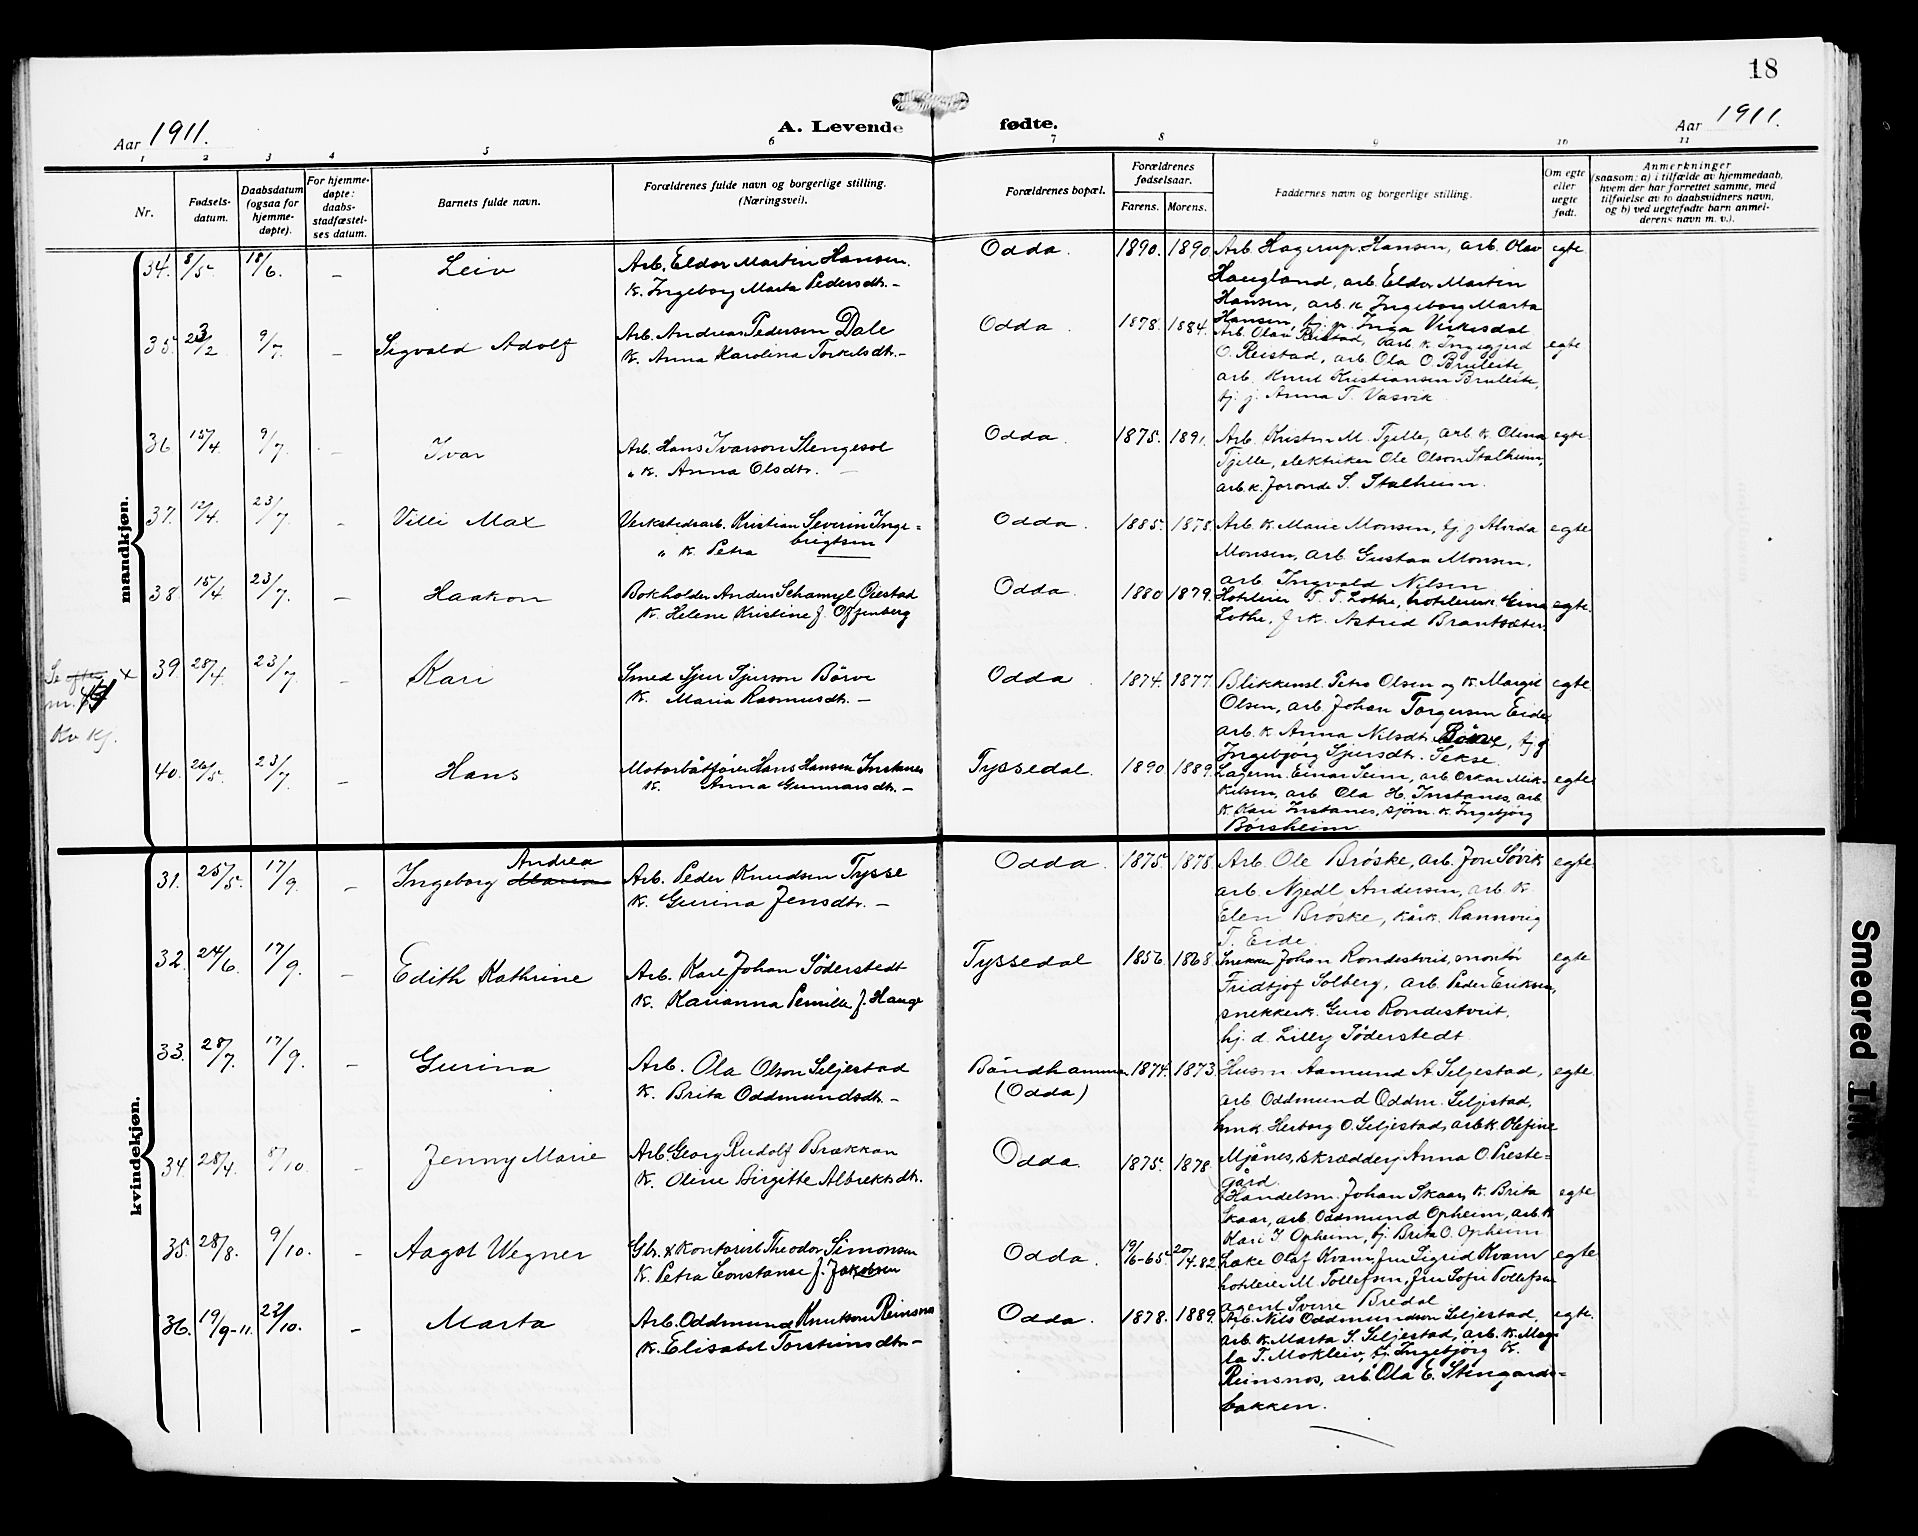 18
Aar 1911.
A. Levende fødte.
Aar 1911.
1 2 3 4 5 6 7 8 9 10 11
Nr.
Fødsels-
datum.
Daabsdatum
(ogsaa for
hjemme-
døpte).
For hjemme-
døpte:
daabs-
stadfæstel-
ses datum.
Barnets fulde navn.
Forældrenes fulde navn og borgerlige stilling.
(Næringsvei).
Forældrenes bopæl.
Forældrenes
fødselsaar.
Farens. Morens.
Faddernes navn og borgerlige stilling.
Om egte
eller
uegte
født.
Anmerkninger
(saasom: a) i tilfælde av hjemmedaab,
hvem der har forrettet samme, med
tilføielse av to daabsvidners navn,
og b) ved uegtefødte barn anmel-
derens navn m. v.).
mandkjøn.
34. 8/5. 18/6. – Leiv
Arb. Eldor Martin Hansen.
K. Ingeborg Marta Pedersdtr. –
Odda. 1890. 1890.
Arb. Hagerup Hansen, arb. Olav
Haugland, arb. Eldor Martin
Hansen, arb. k. Ingeborg Marta
Hansen, tj. p. Inga Virkesdal
egte
35. 23/2 9/7. – Sigvald Adolf
Arb. Andreas Pedersen Dale
K. Anna Karolina Torkilsdtr. –
Odda. 1878. 1884.
Arb. Olav Reistad, arb. k. Ingegjerd
O. Reistad, arb. Ola O. Bruleite
arb. Knut Kristiansen Bruleite,
tj. j. Anna T. Vasvik
egte
36 15/4. 9/7. – Ivar
Arb. Hans Ivarson Stengesol
" K. Anna Olsdtr. –
Odda. 1875. 1891.
Arb. Kristen M. Tjelle, arb. k. Olina
Tjelle, elektriker Ole Olson Stalheim,
arb. k. Joronde S. Stalheim.
egte
37. 12/4. 23/7. – Villi Max
Verkstedsarb. Kristian Severin Inge-
brigtsen
" K. Petra
Odda. 1885. 1878.
Arb. k. Marie Monsen, tj. g Alvida
Monsen, arb. Gustav Monsen,
arb. Ingvald Nilsen
egte
38 15/4 23/7. – Haakon
Bokholder Anders Schamyl Øiestad
K. Helene Kristine f. Offenberg
Odda. 1880 1879.
Hoteleier T. T. Lothe, hoteleierk. Eina
Lothe, frk. Astrid Brantsæter.
egte.
Se
nr. 41
Kv. kj.
39 28/4. 23/7. – Kari
Smed Sjur Sjurson Börve
K. Maria Rasmusdtr. –
Odda 1874. 1877.
Blikkensl. Petra Olsen og k. Margit
Olsen, arb. Johan Torgersen Eide,
arb. k. Anna Nilsdtr. Börve, tj. g
Ingebjörg Sjursdtr. Sekse
egte
40. 26/5. 23/7 – Hans
Motorbåtfører Hans Hansen Instanes
K. Anna Gunnarsdtr. –
Tyssedal. 1890 1889.
Lagerm. Einar Seim, arb. Oskar Mik-
kelsen, arb. Ola H. Instanes, arb.
k. Kari Instanes, sjöm. k. Ingebjörg
Börsheim
egte
kvindekjøn.
31. 25/5. 17/9. – Ingeborg Maria Andrea
Arb. Peder Knudsen Tysse
K. Gurina Jensdtr. –
Odda. 1875. 1878.
Arb. Ole Bröske, arb. Jon Søvik
arb. Njedl Andersen, arb. k.
Elen Bröske, kårk. Rannveig
T. Eide.
egte
32. 24/6. 17/9. – Edith Kathrine
Arb. Karl Johan Söderstedt
K. Karianna Pernille f. Hauge
Tyssedal 1856. 1868.
Snekker Johan Rondestveit, montör
Fridtjof Solberg, arb. Peder Eriksen,
snekkerk. Guro Rondestveit,
hj. d. Lilly Söderstedt
egte
33. 28/7. 17/9. – Gurina
Arb. Ola Olson Seljestad
K. Brita Oddmundsdtr. –
Böndhammer
(Odda)
1874. 1873.
Husm. Aamund A Seljestad,
arb. Oddmund Oddm. Seljestad,
hmk. Herborg O. Seljestad, arbk. Olefine
Mjånes, skrædderj Anna O. Preste-
gård.
egte
34. 28/4. 8/10. – Jenny Marie
Arb. Georg Rudolf Brækkan
K. Oline Birgitte Albrektsdtr.
Odda. 1875. 1878
Handelsm. Johan Skaar, k. Brita
Skaar, arb. Oddmund Opheim, arb. k
Kari J. Opheim, tj. Brita O. Opheim
egte
35. 28/8. 9/10. – Aagot Wegner
Gbr. & Kontorist Theodor Simonsen
K. Petra Constanse f. Jakobsen
Odda. 19/6-65. 20/4.82.
Læke Olaf Kvam, Fru Sigrid Kvam
hoteleier M. Tollefsen, Fru Sofie Tollefsen
agent Sverre Bredal
egte
36. 19/9-11. 22/10. – Marta
Arb. Oddmund Knutson Reinsnos
K. Elisabet Torsteinsdtr. –
Odda. 1878. 1889.
Arb. Nils Oddmundson Seljestad,
arb. k. Marta S. Seljestad, arb. k. Mag-
la T. Mokleiv, tj. Ingebjörg K.
Reinsnos, arb. Ola E. Steingards-
bakken.
egte.
Smeared Ink